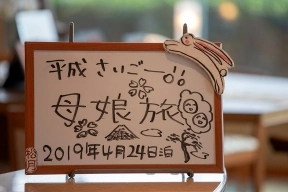 平成さいごー!!
母娘旅
2019年4月24日泊